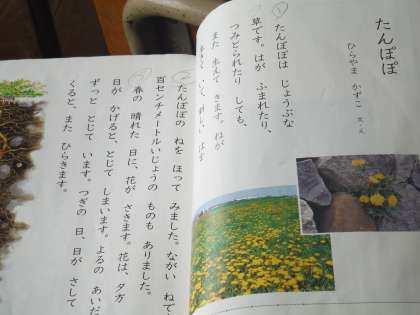 たんぽぽ
ひらやま かずこ 文・え
①
たんぽぽは じょうぶな
草です。はが ふまれたり、
つみとられたり しても、
また 生えて きます。ねが
生きて いて、新しい はを
②
たんぽぽの ねを ほって みました。ながい ねで
百センチメートルいじょうの ものも ありました。
春の 晴れた 日に、花が さきます。花は、夕方
日が かげると、とじて しまいます。よるの あいだ
ずっと とじて います。つぎの 日、日が さして
くると、また ひらきます。